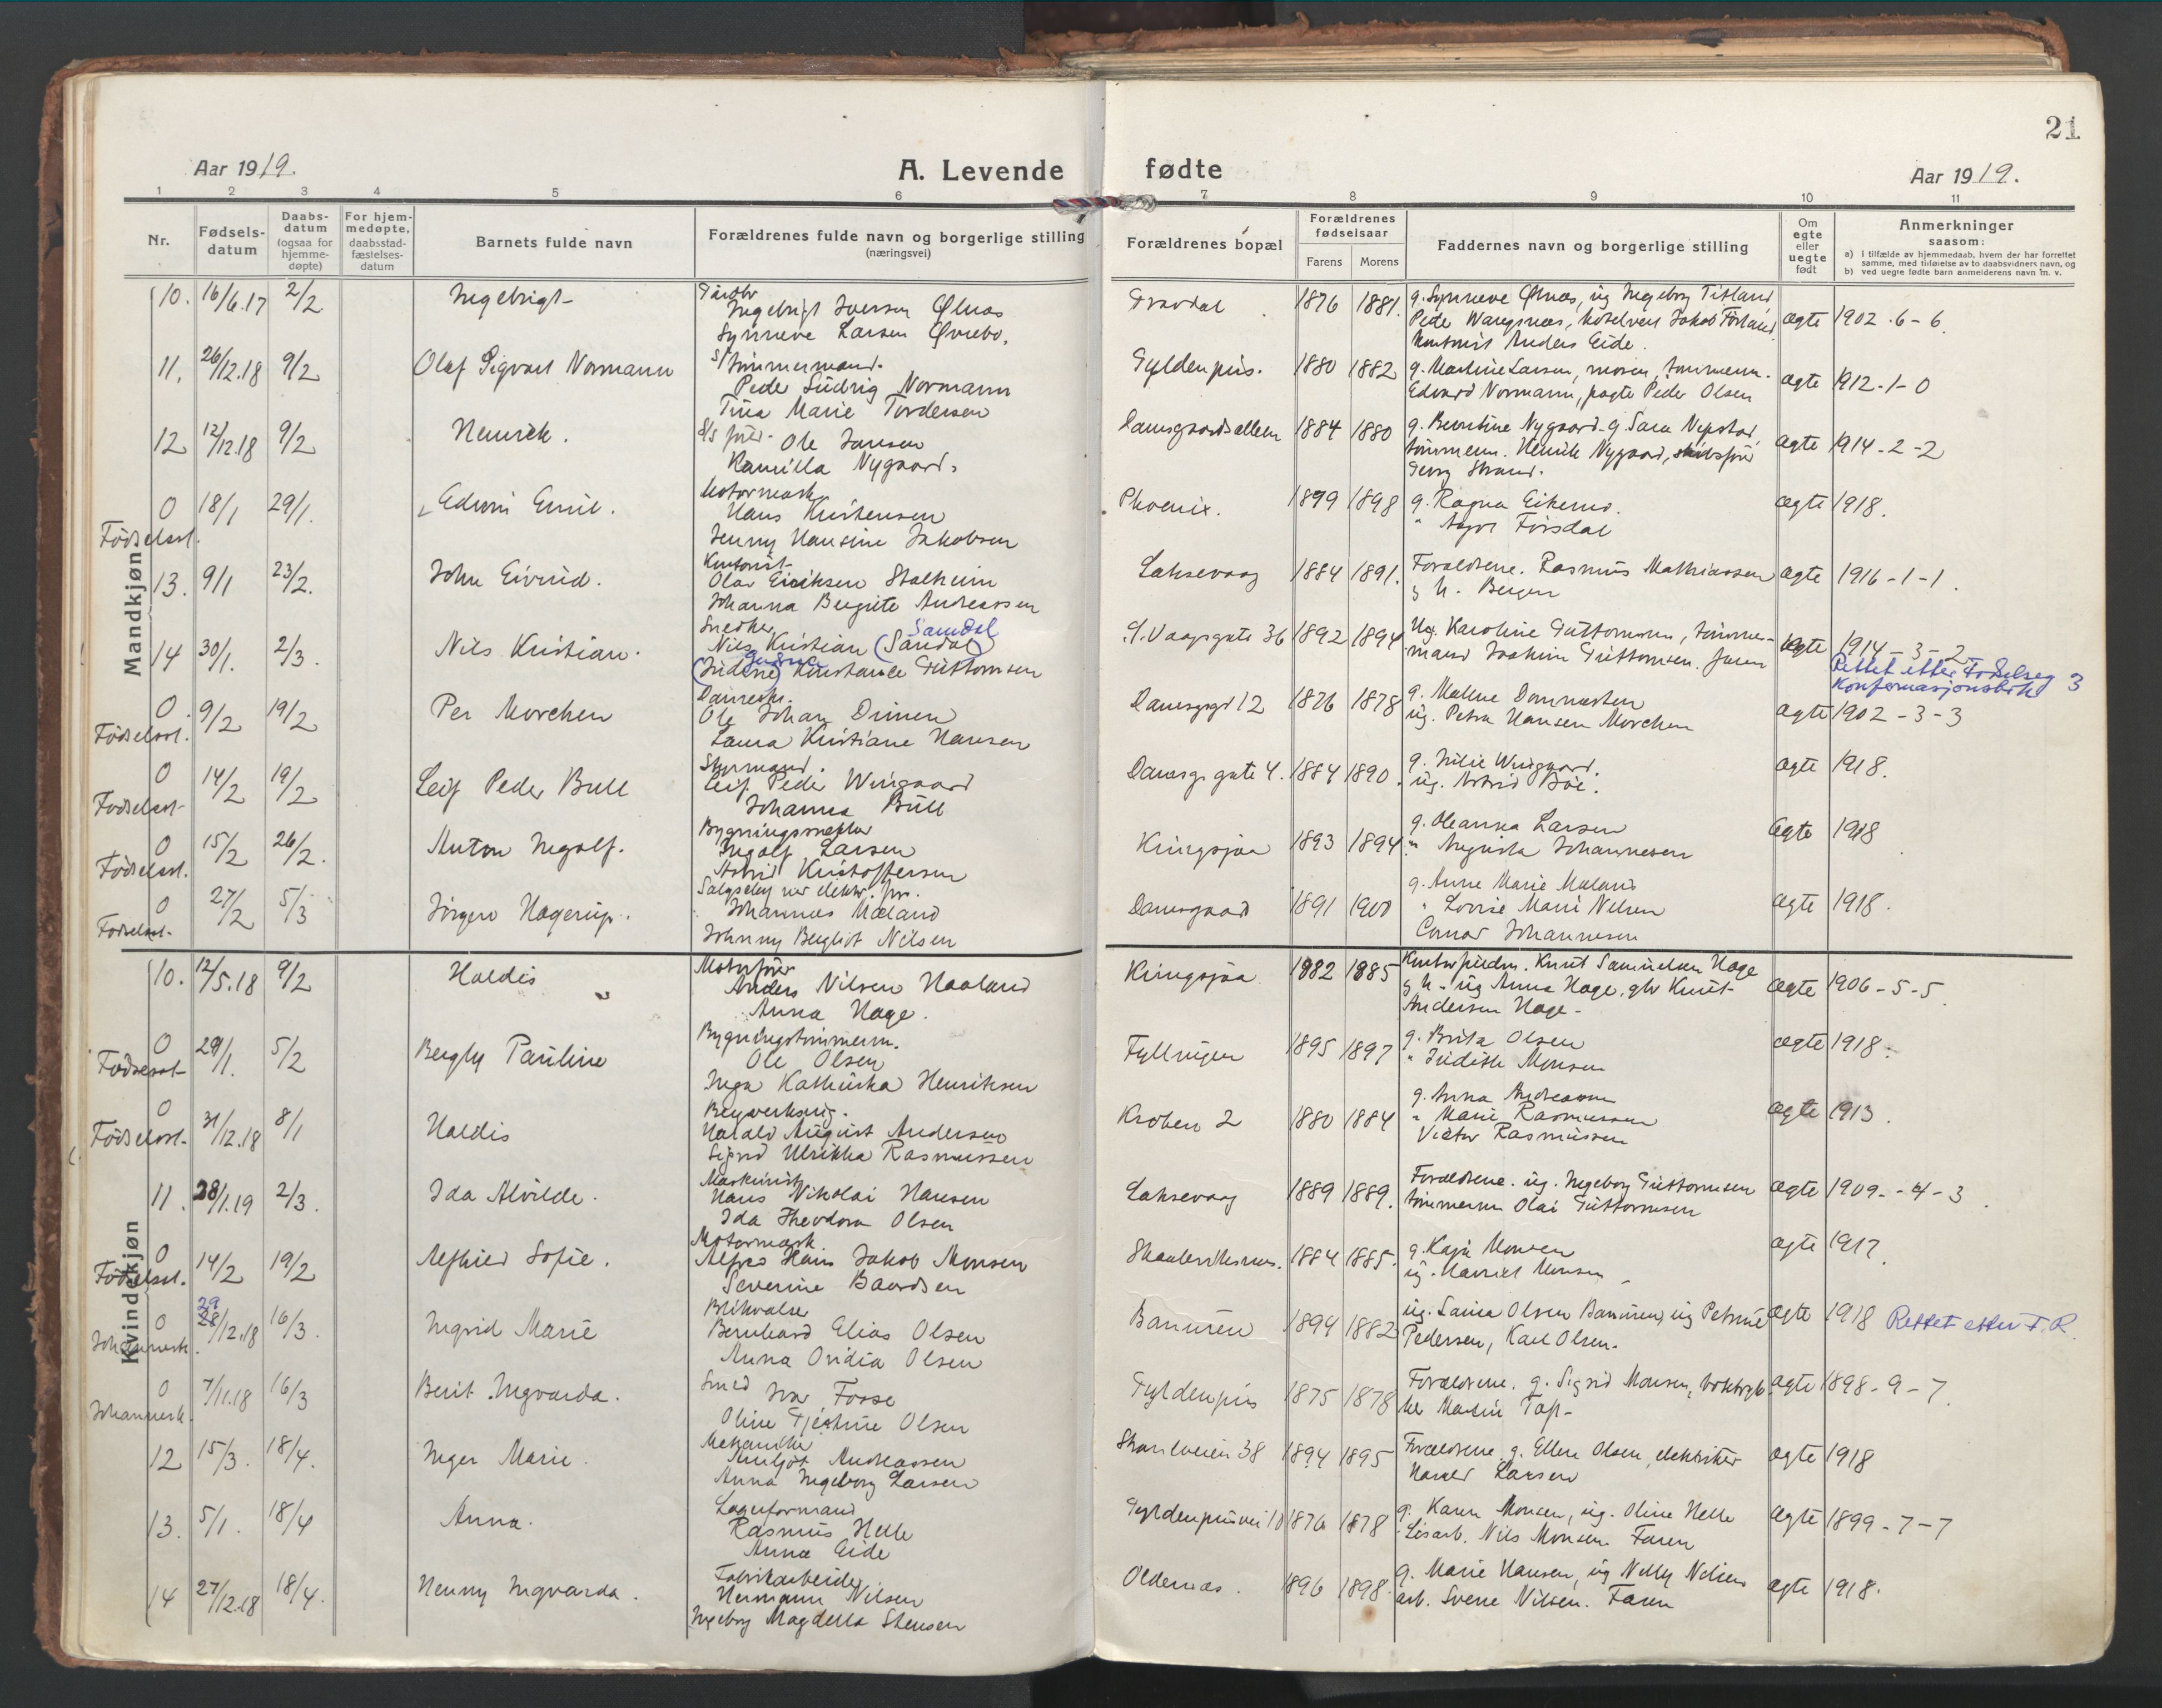 21
Aar 1919.
A. Levende fødte
Aar 1919.
1 2 3 4 5 6 7 8 9 10 11
Nr.
Fødsels-
datum
Daabs-
datum
(ogsaa for
hjemme-
døpte)
For hjem-
medøpte,
daabsstad-
fæstelses-
datum
Barnets fulde navn
Forældrenes fulde navn og borgerlige stilling
(næringsvei)
Forældrenes bopæl
Forældrenes
fødselsaar
Farens Morens
Faddernes navn og borgerlige stilling
Om
egte
eller
uegte
født
Anmerkninger
saasom:
a) I tilfælde av hjemmedaab, hvem der har forrettet
samme, med tilføielse av to daabsvidners navn, og
b) ved uegte fødte barn anmelderens navn m. v.
Mandkjøn
10. 16/6.17 2/2 Ingebrigt
Ingebrigt Iversen Ølnæs
Synneve Larsen Øvrebø.
Gravdal 1876 1881.
g. Synneve Ølnæs, ug Ingeborg Titland
Anders Eide.
ægte 1902 . 6 - 6
11. 26/12.18 9/2 Olaf Sigvart Normann
Tømmermand.
Peder Ludvig Normann
Tina Marie Tordersen
Gyldenpris. 1880 1882
g. Martine Larsen, moren, tømmerm.
Edvard Normann, Peder Olsen
ægte 1912 - 1 - 0
12 12/12.18 9/2 Henrik.
Ole Jansen
Kamilla Nygaard.
Damsgaardsalleen 1884 1880
g. Berntine Nygaard. g. Sara
tømmerm. Henrik Nygaard, skibsfører
Georg Strand.
ægte 1914 - 2 - 2
0 18/1 29/1. Edvin Emil.
Fødselsst.
Motormask.
Hans Kristensen
Jenny Hansine Jakobsen
Phoenix. 1899 1898
g. Ragna Eikemo.
" Aagot Førsdal
ægte 1918.
13. 9/1 23/2. John Eivind.
Kontorist
Olav Eriksen Stalheim
Johanna Bergite Andreassen
Laksevaag 1884 1891.
Forældrene. Rasmus Mathiassen
& h. Bergen
ægte 1916 - 1 - 1
14 30/1. 2/3. Nils Kristian.
Snedker
Nils Kristian (Sandal) Samdal
(Judine) Konstance Guttormsen
1892 1894
Ug. Karoline Guttormsen, tømmer-
mand Joakim Guttormsen. faren
ægte 1914 - 3 - 2
Rettet etter Fødselseg
Konfirmasjonsbok 3
0. 9/2 19/2 Per Morchen
Fødselsst.
Ole Johan Drimen
Laura Kristiane Hansen
Damsgsgt 12 1876 1878
g. Malene Dammasten
ug. Petra Hansen Morchen
ægte 1902 - 3 - 3
0 14/2 19/2 Leif Peder Bull
Fødselsst
Styrmand.
Leif Peder Wingaard
Johanna Bull
Damsgs gate 4. 1884 1890
g. Julie Wingaard.
ug. Astrid Bøe.
ægte 1918.
0 15/2 26/2. Anton Ingolf.
Fødselsst.
Ingolf Larsen
Astrid Kristoffersen
Kringsjaa 1893 1894
g. Oleanna Larsen
" Augusta Johannesen
ægte 1918
0 27/2 5/3 Jørgen Hagerup.
Fødselsst.
Johannes Mæland
Johnny Bergliot Nilsen
Damsgaard 1891 1900
g. Anne Marie Mæland
" Lovise Marie Nilsen
Conrad Johannesen
ægte 1918.
Kvindekjøn
10. 12/5.18 9/2 Haldis
Motorfører
Anders Nilsen Haaland
Anna Hage.
Kringsjaa 1882 1885
Knut Samuelsen Hage
& h - ug Anna Hage, gbr Knut
Andersen Hage -
ægte 1906 - 5 - 5
0 29/1. 5/2 Bergly Pauline
Fødselsst
Bygningstømmerm.
Ole Olsen
Inga Kathinka Henriksen
Fyllingen 1895 1897
g. Brita Olsen
" Judith Monsen
ægte 1918.
0 31/12.18 8/1 Haldis
Fødselsst.
Harald August Andersen
Sigrid Ulrikka Rasmussen
Kroben 2 1880 1884
g. Anna Andreassen
" Marie Rasmussen
Victor Rasmussen
ægte 1913.
11. 28/1.19 2/3. Ida Alvilde.
Maskinist
Hans Nikolai Hansen
Ida Theodora Olsen
Laksevaag 1889 1889.
Forældrene. ug. Ingeborg Guttormsen
tømmerm Olai Guttormsen
ægte 1909 - 4 - 3
0 14/2 19/2 Alfhild Sofie.
Fødselsst.
Motormask.
Alfred Hans Jakob Monsen
Severine Baardsen
1884 1885.
g. Kaja Monsen
ug. Harriet Monsen
ægte 1917
0 29 28/12.18 16/3. Ingrid Marie
Johannesk.
Blikvalser
Bernhard Elias Olsen
Anna Ovidia Olsen
1894 1882
ug. Laura Olsen ug Petrine
Pedersen, Karl Olsen.
ægte 1918 Rettet etter F. R.
0 7/11.18 16/3 Berit Ingvarda.
Johannesk.
Smed
Ivar Fosse
Oline Olsen
Gyldenpris 1875 1878
Forældrene. g. Sigrid Monsen,
ker Martin Tap-
ægte 1898 - 9 - 7
12 15/3. 18/4. Inger Marie.
Mekaniker
Andreassen
Anna Ingeborg Larsen
1894 1895
Forældrene g. Ellen Olsen, elektriker
Harald Larsen
ægte 1918
13. 5/1. 18/4 Anna.
Lagerformand
Rasmus Helle
Anna Eide
Gyldenprisvei 10 1876 1878
g. Karen Monsen, ug. Oline Helle
Nils Monsen. Faren
ægte 1899 - 7 - 7
14 27/12.18 18/4. Henny Ingvarda.
Fabrikarbeider
Hermann Nilsen
Ingeborg Magdella Stensen
Oldernæs. 1896 1898.
g. Marie Hansen, ug Nelly Nilsen
arb. Sverre Nilsen. Faren
ægte 1918.